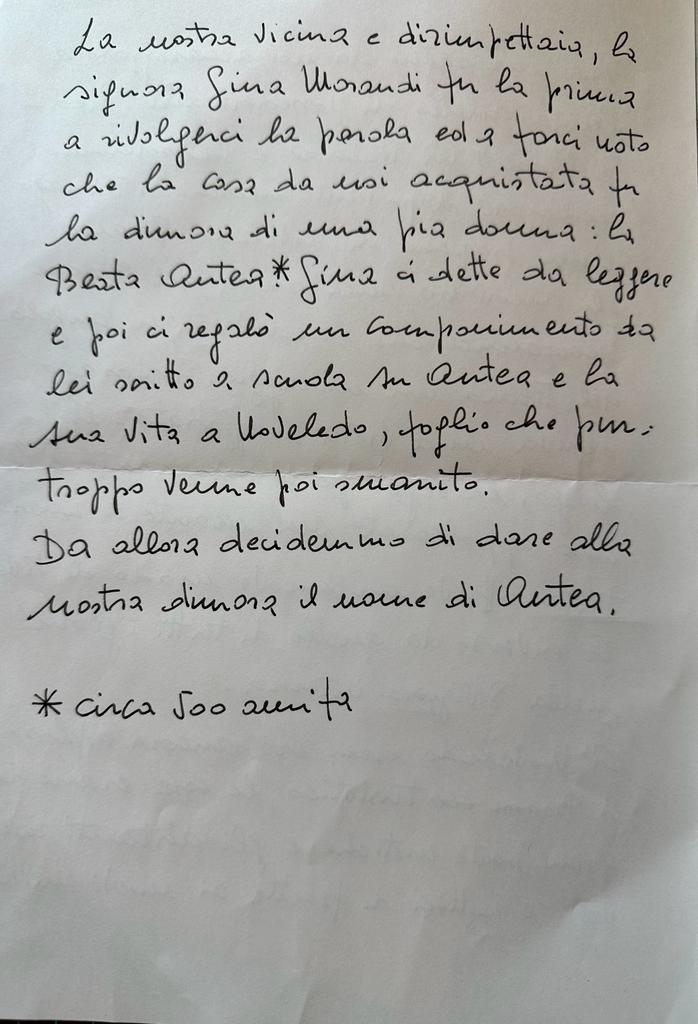 La nostra vicina e dirimpettaia, la
signora Gina Morandi fu la prima
a rivolgerci la parola ed a farci noto
che la casa da noi acquistata fu
la dimora di una pia donna: la
Beata Antea.* Gina ci dette da leggere
e poi ci regalò un componimento da
lei scritto a scuola su Antea e la
sua vita a Noveledo, foglio che pur-
troppo venne poi smarrito.
Da allora decidemmo di dare alla
nostra dimora il nome di Antea.
* circa 500 anni fa